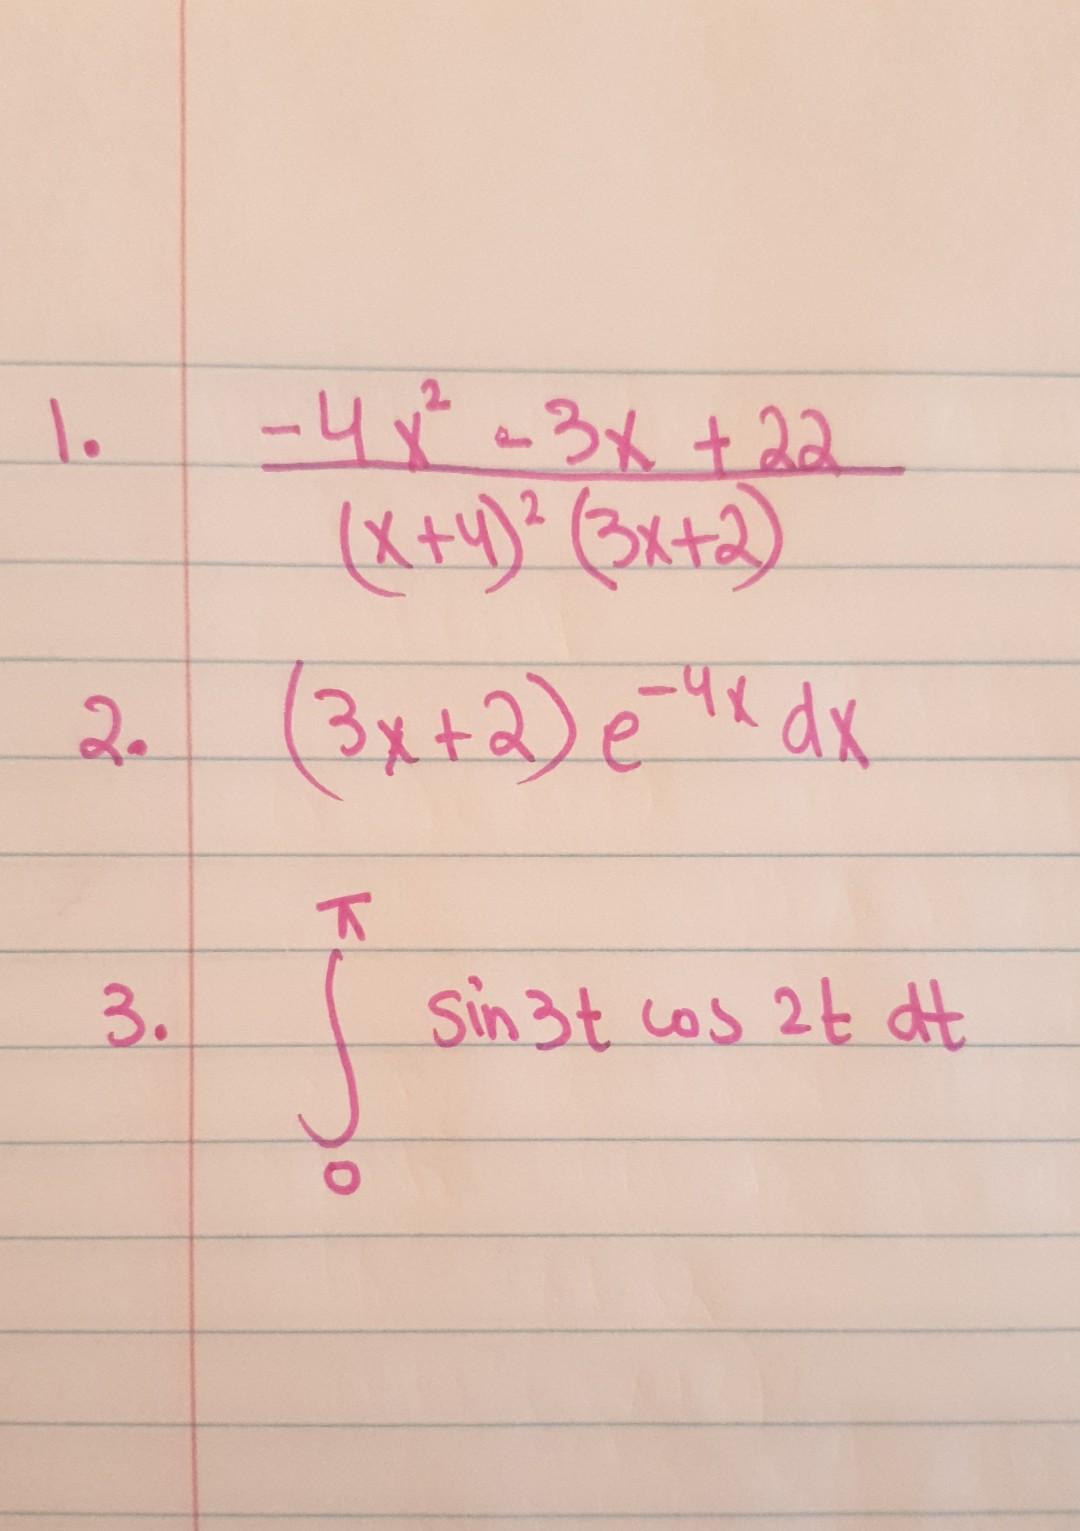 1. -4x² - 3x + 22
(x+4)² (3x+2)
2. (3x+2) e^-4x dx
π
3. ∫ sin 3t cos 2t dt
0